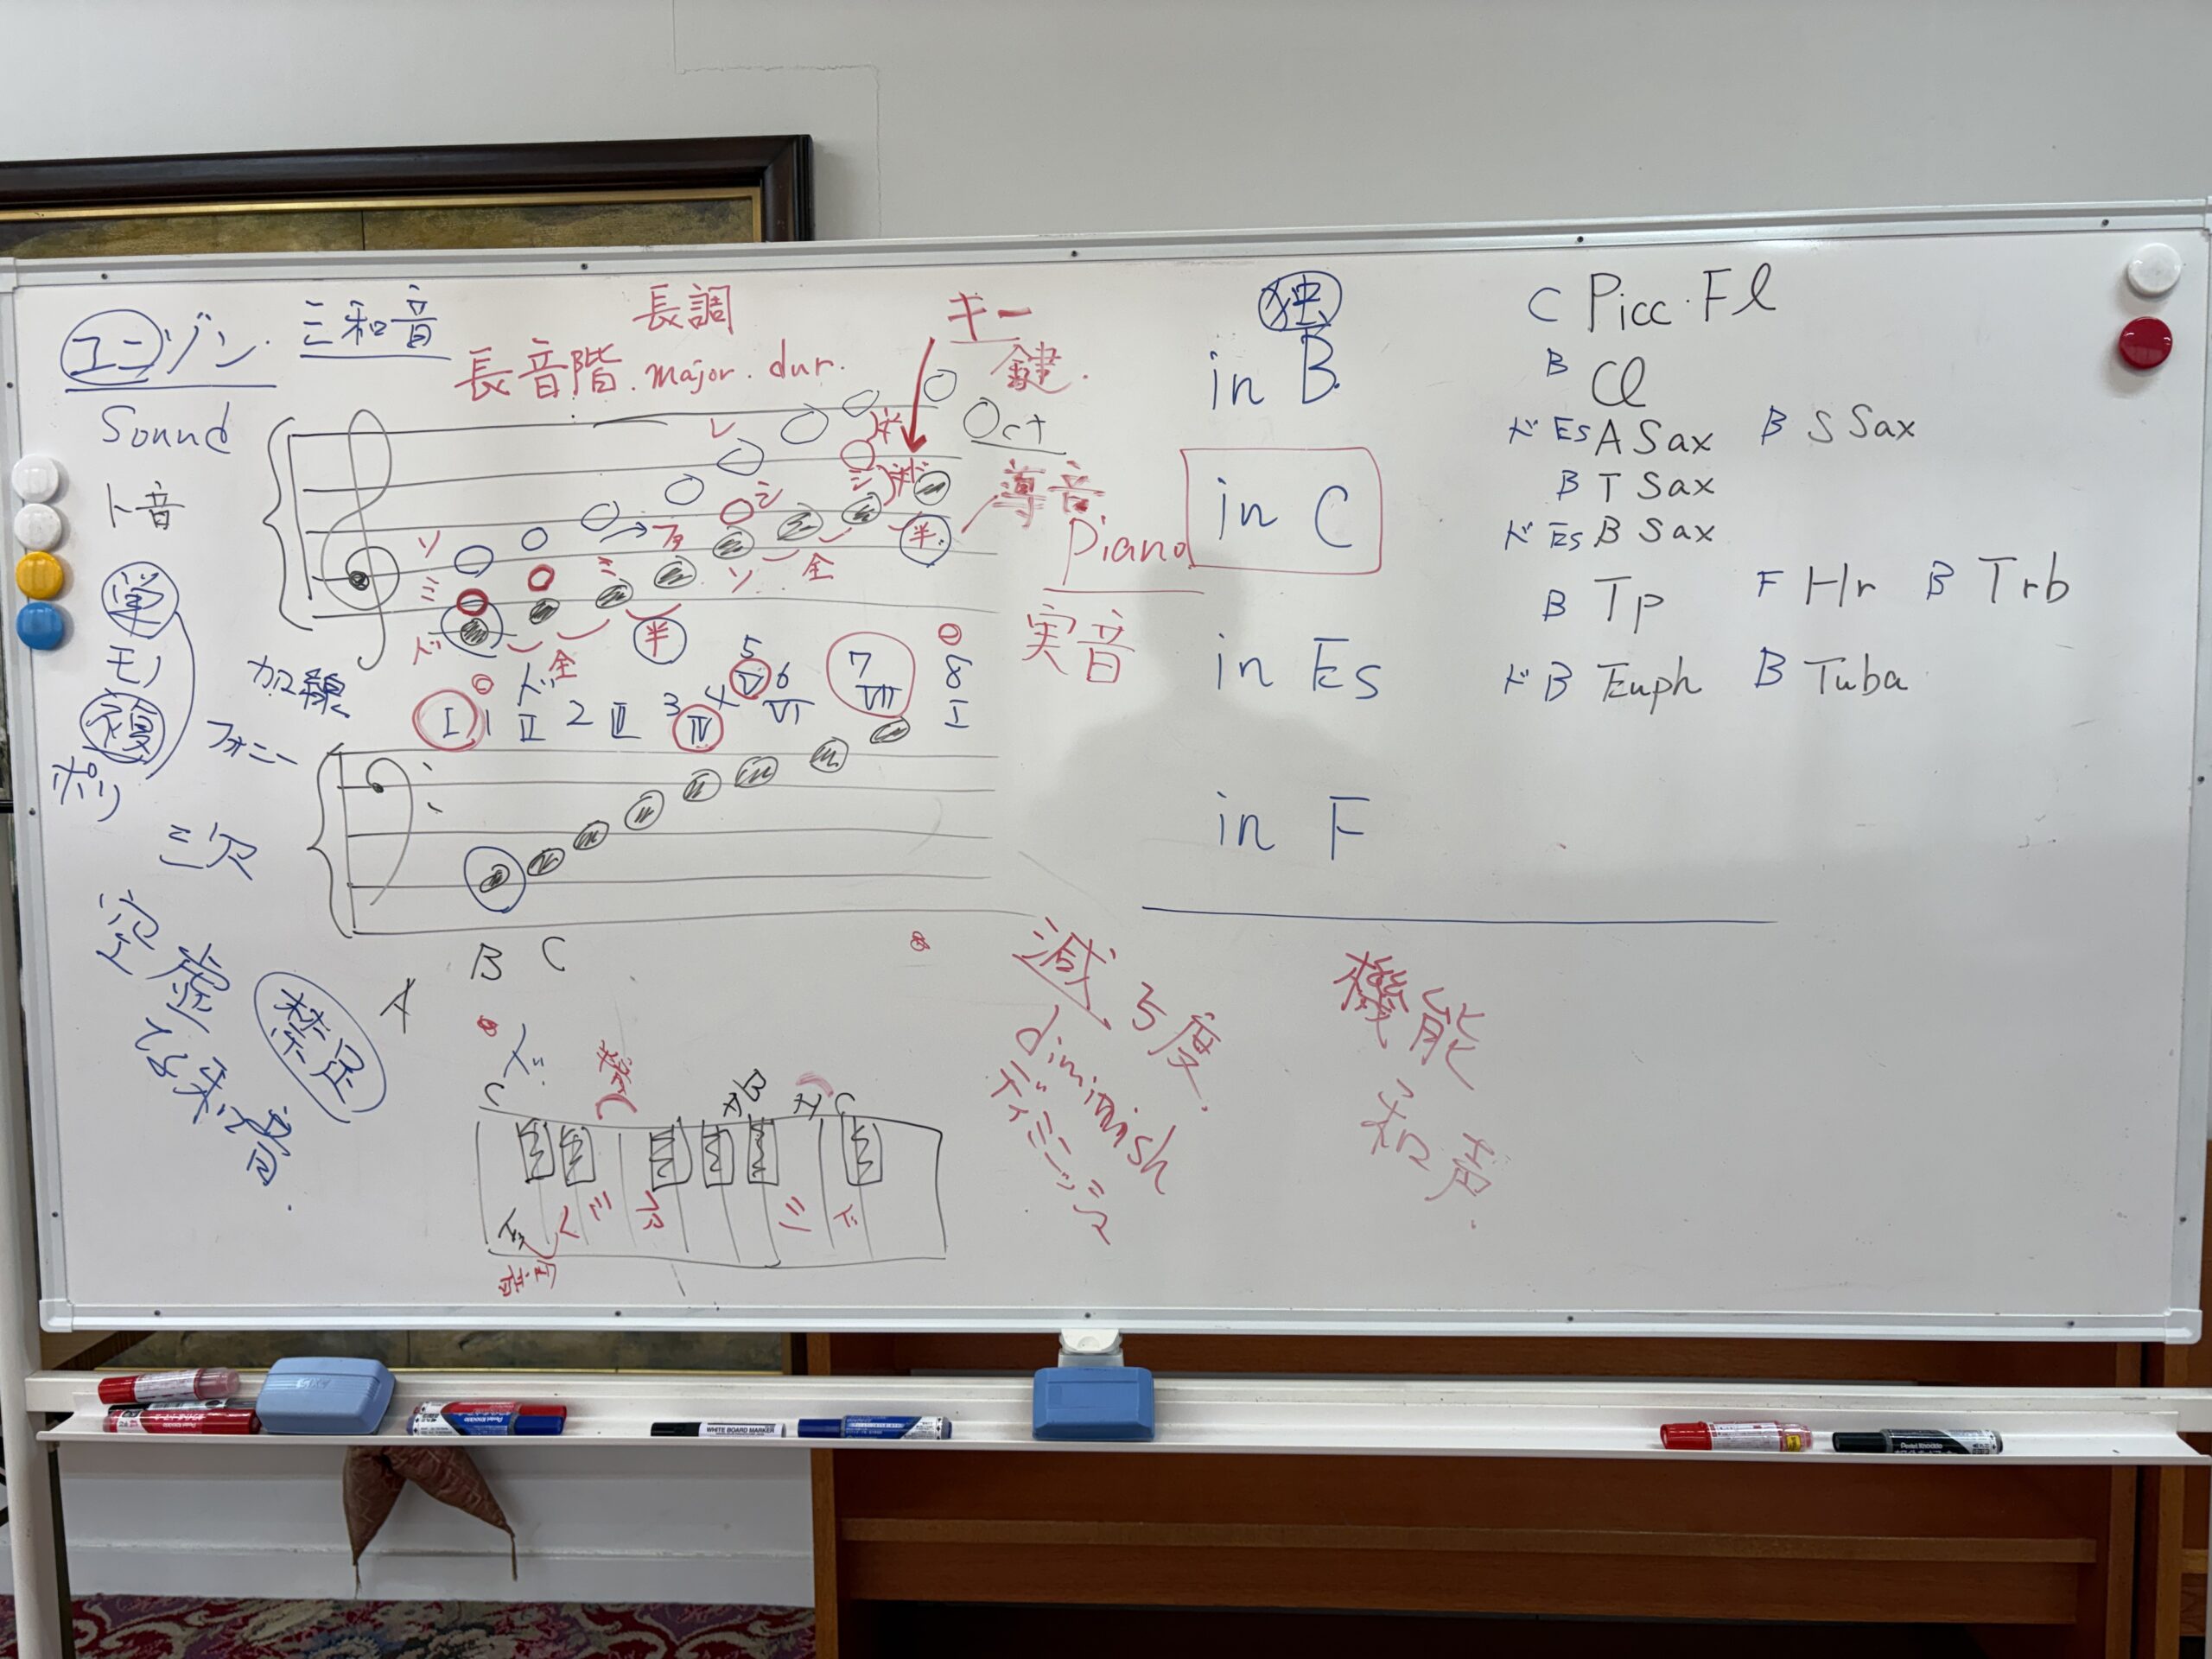 ユニゾン. 三和音
長調
長音階. major. dur.
キー
鍵.
Sound
ト音
単
モノ
複
フォニー
ポリ
三次
空虚
な和音.
禁足
加線
Oct
導音
Piano
実音
レ
半
半
シ
シ
半.
ソ
ファ
ミ
ミ
ソ
全
ド
全
半
ド
I 1 II 2 III 3 IV 4 V 5 VI 6 VII 7 I 8
A B C
ド
C B C
ド レ ミ ファ シ ド
全音
減5度.
diminish
ディミニッシュ
機能
和声.
独
in B
in C
in Es
in F
C Picc. Fl
B Cl
ド Es A Sax B S Sax
B T Sax
ド Es B Sax
B Tp F Hr B Trb
ド B Euph B Tuba
WHITE BOARD MARKER